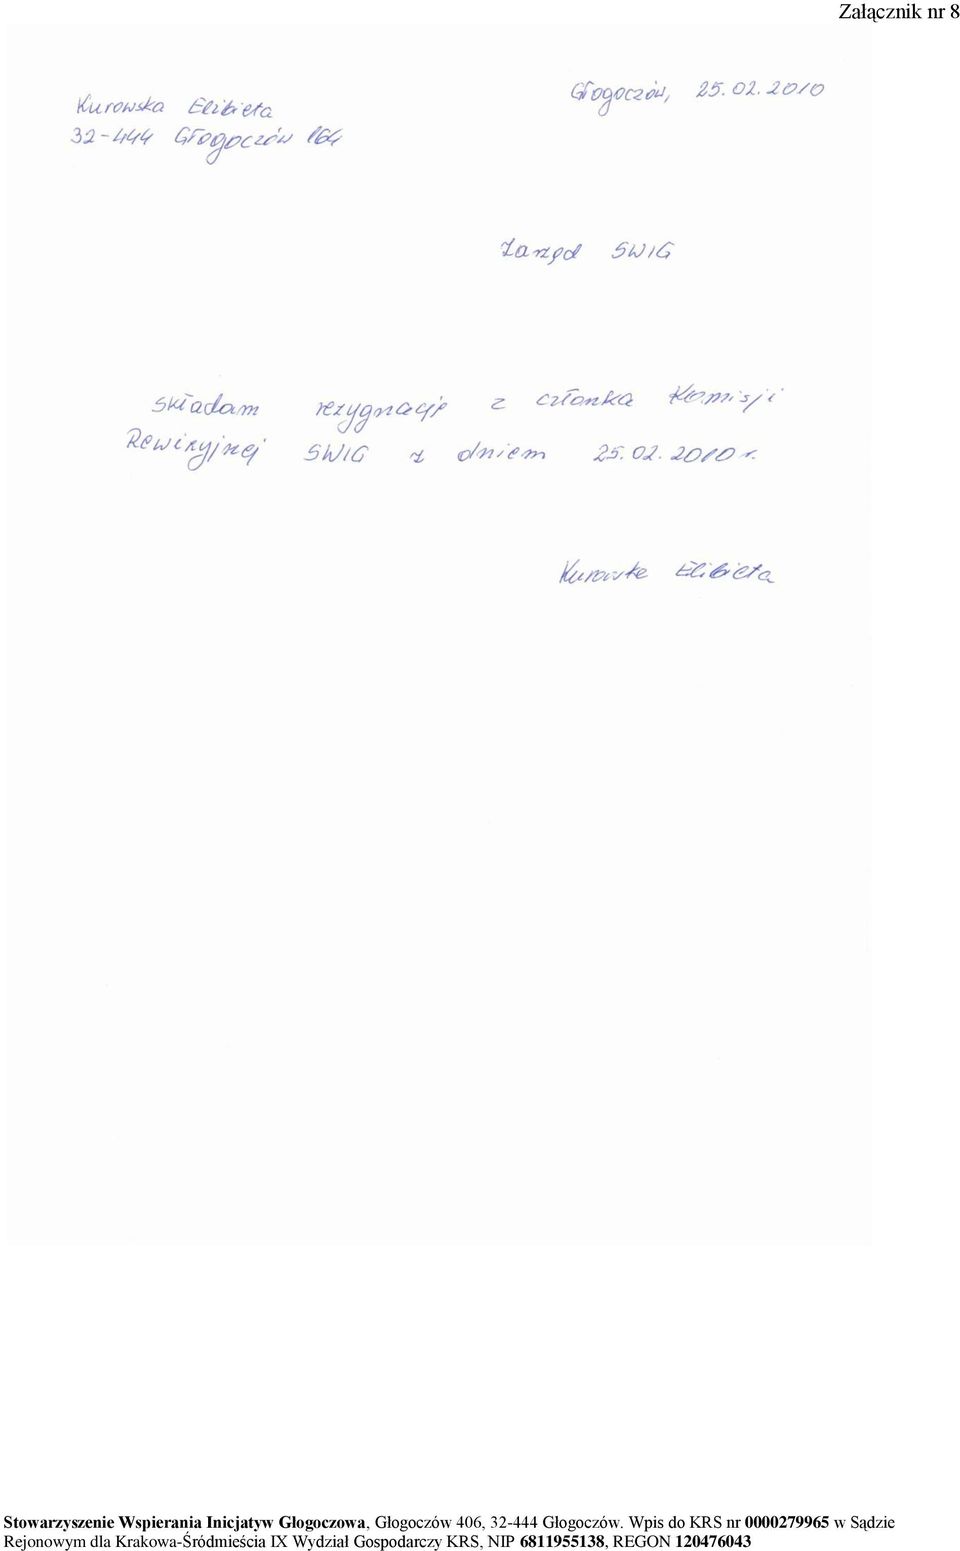 Załącznik nr 8
Kurowska Elżbieta
Głogoczów, 25.02.2010
32-444 Głogoczów 164
Zarząd SWIG
Składam rezygnację z członka Komisji
Rewizyjnej SWIG z dniem 25.02.2010 r.
Kurowska Elżbieta
Stowarzyszenie Wspierania Inicjatyw Głogoczowa, Głogoczów 406, 32-444 Głogoczów. Wpis do KRS nr 0000279965 w Sądzie
Rejonowym dla Krakowa-Śródmieścia IX Wydział Gospodarczy KRS, NIP 6811955138, REGON 120476043